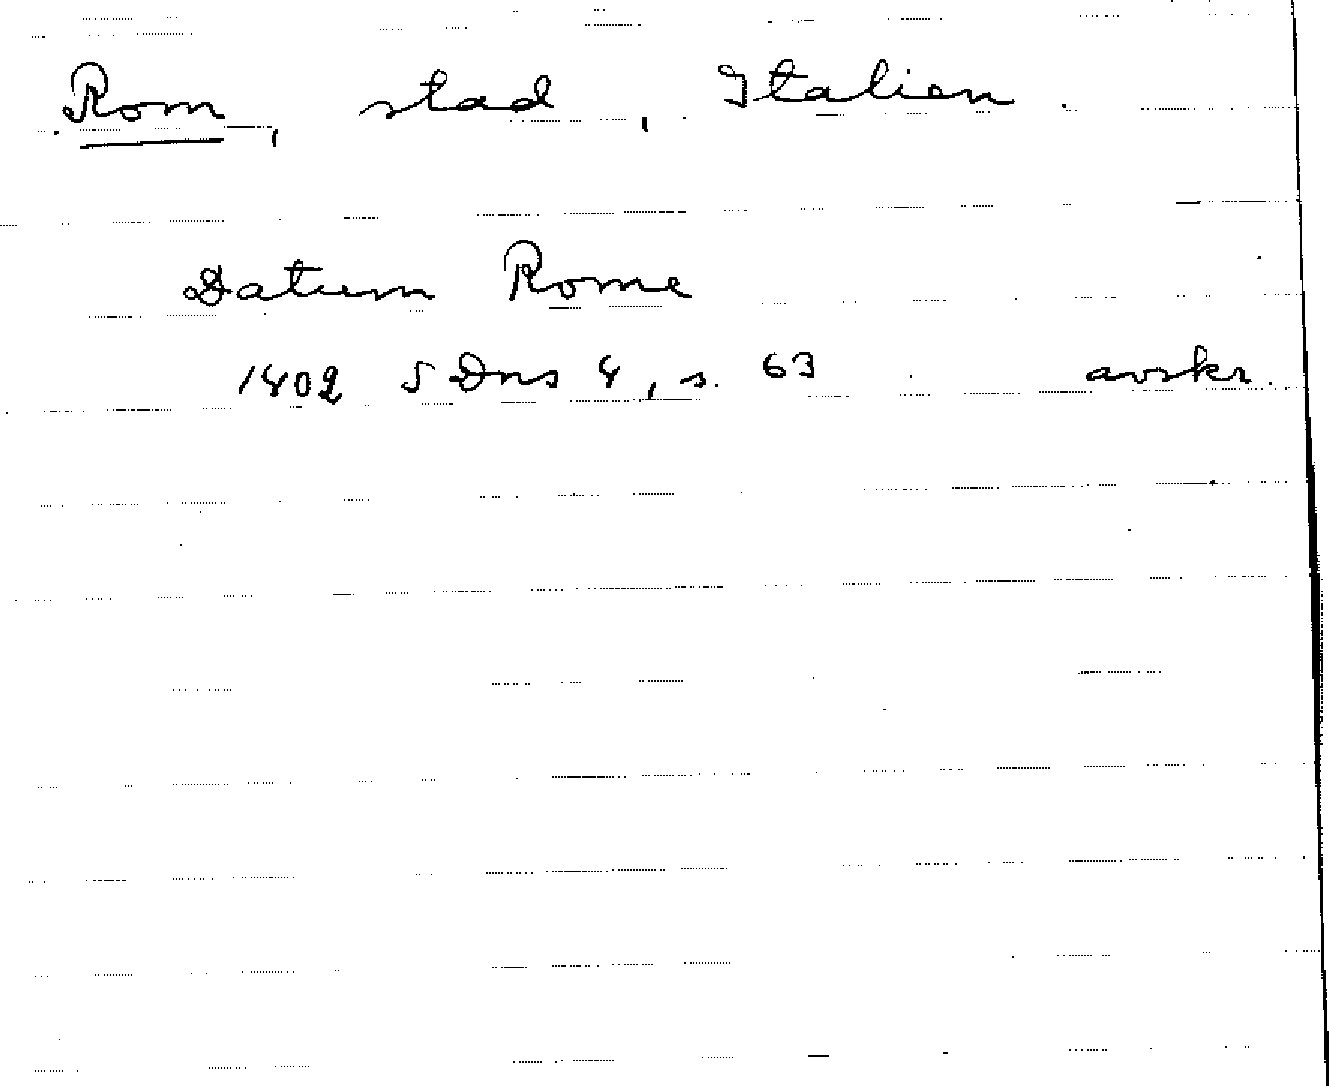 Rom, stad, Italien
Datum Rome
1402 5 Dns 4, s. 63 avskr.